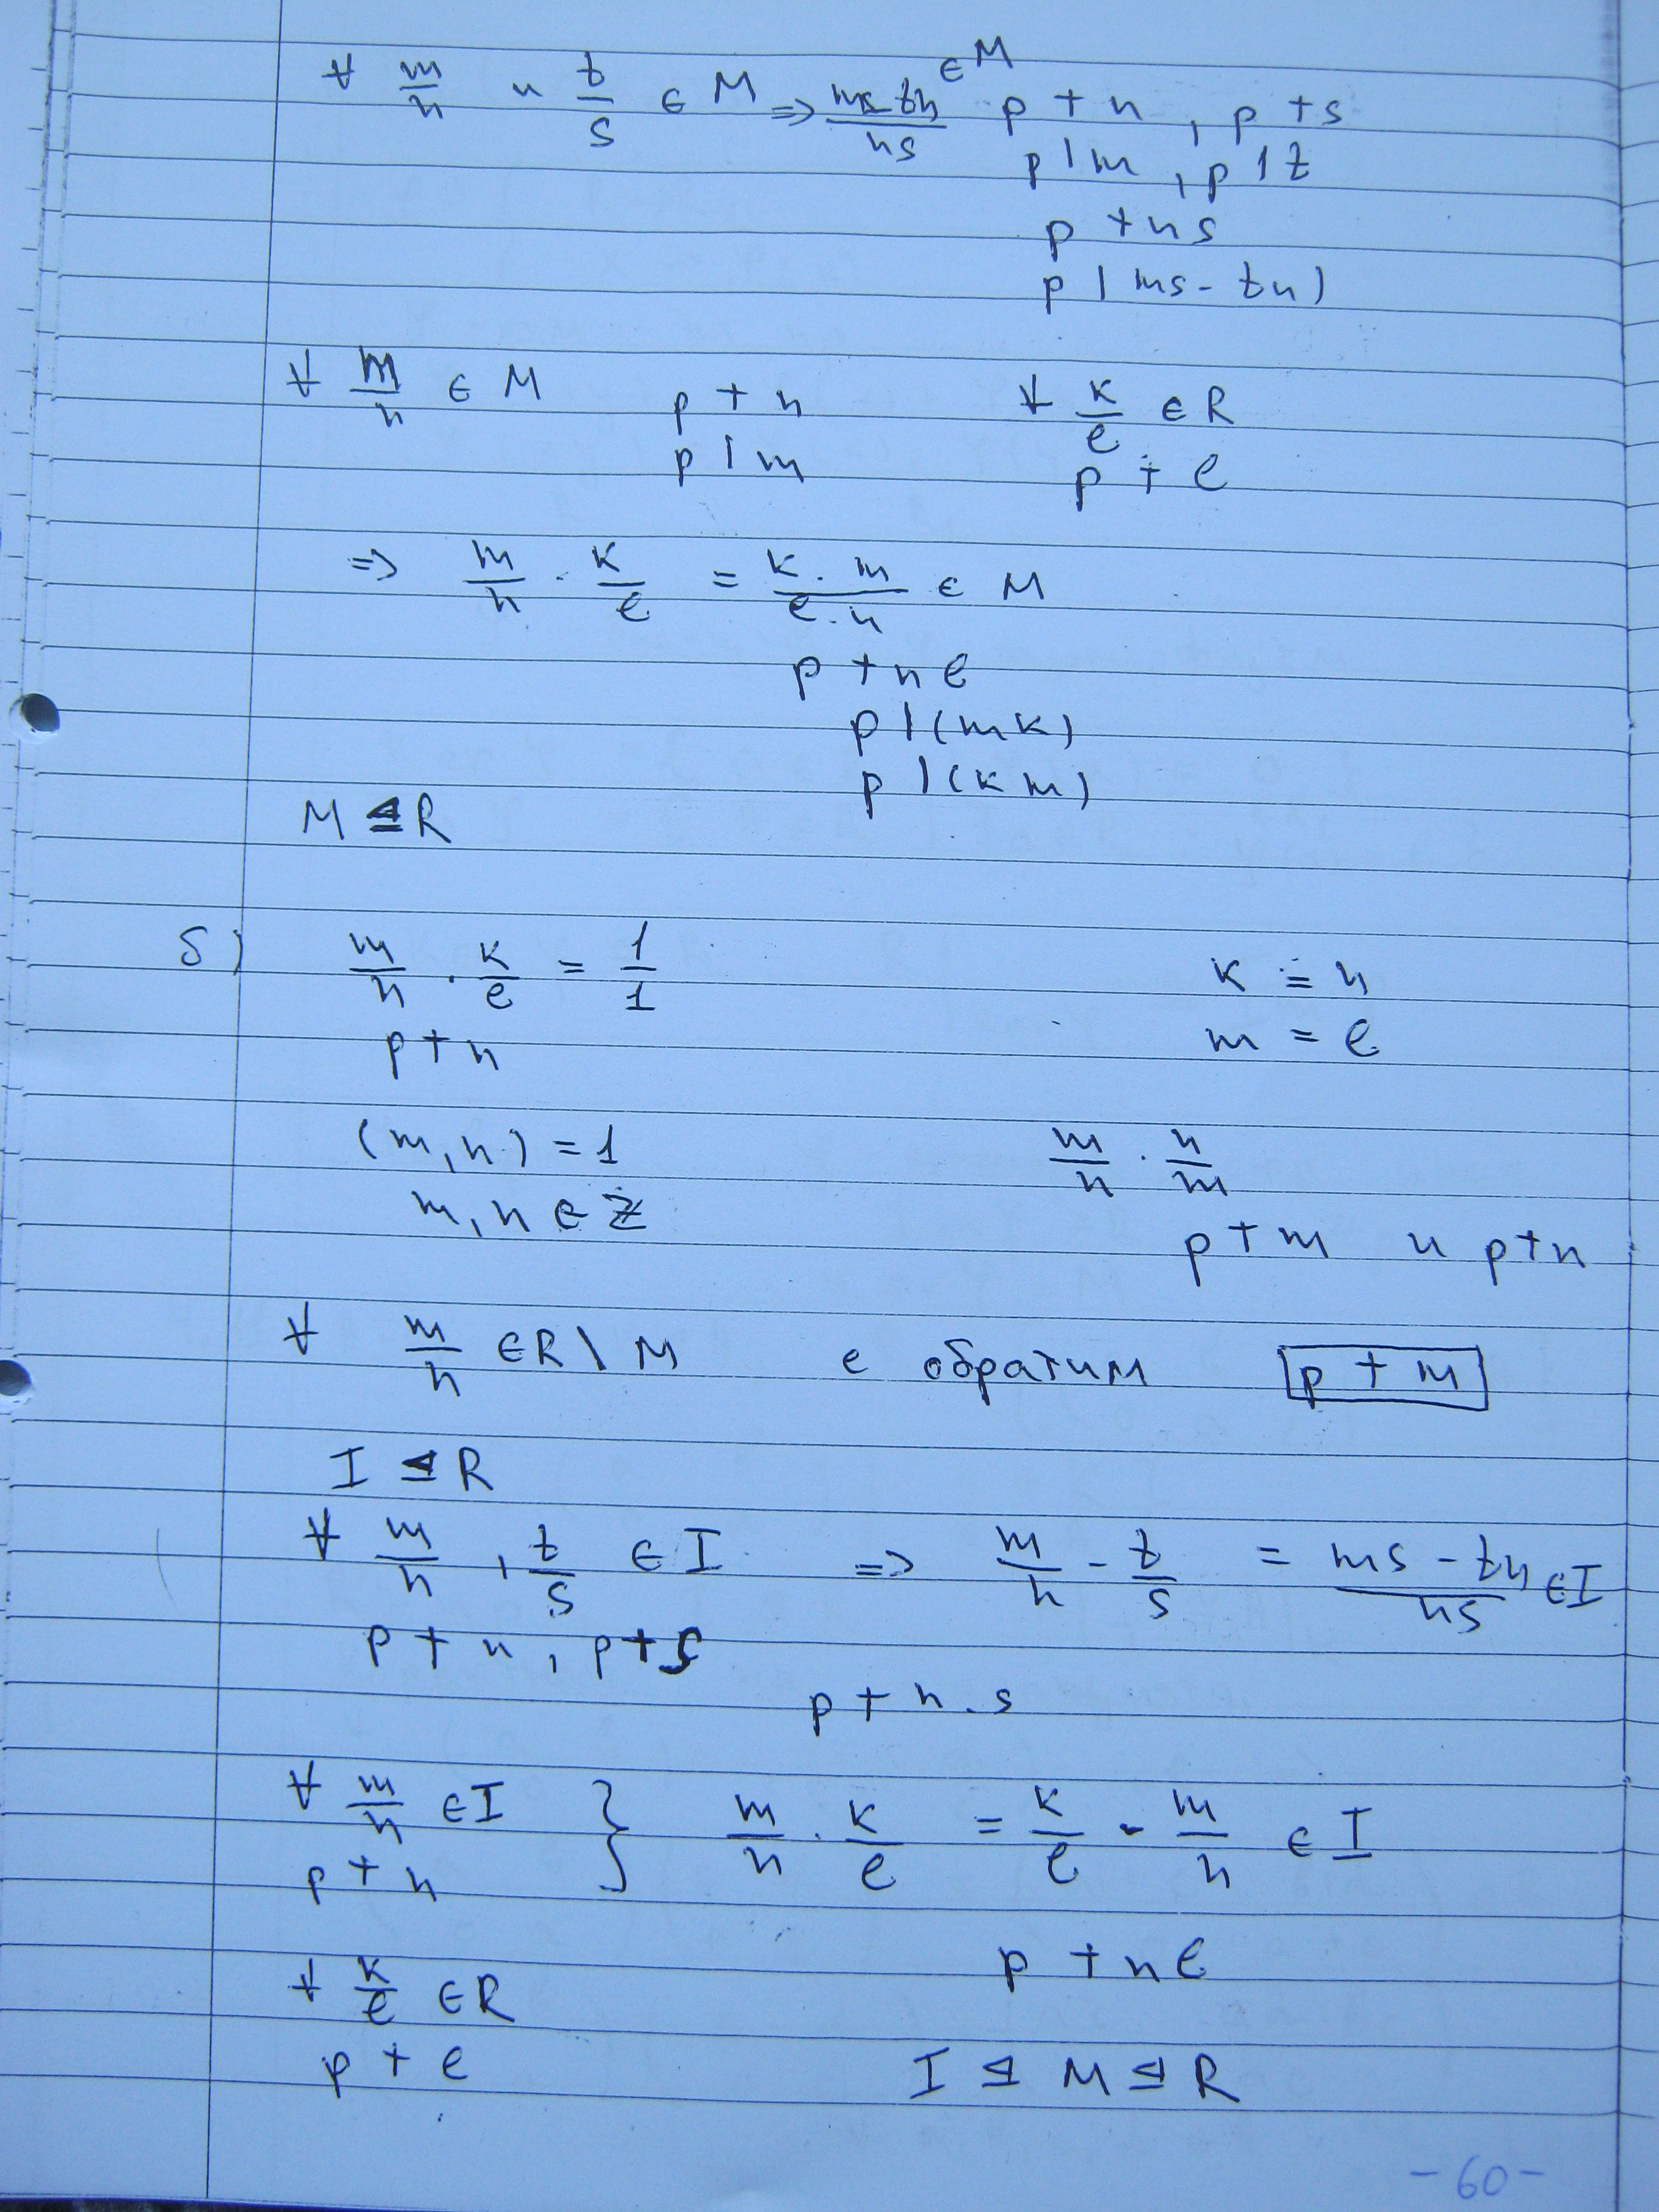 ∀ m/n и t/s ∈ M ⇒ (ms-tn)/ns ∈ M p ∤ n, p ∤ s
p | m, p | t
p ∤ ns
p | (ms - tn)
∀ m/n ∈ M p ∤ n ∀ k/l ∈ R
p | m p ∤ l
⇒ m/n · k/l = k·m/l·n ∈ M
p ∤ nl
p | (mk)
p | (km)
M ⊴ R
б) m/n · k/l = 1/1 k = n
p ∤ n m = l
(m, n) = 1 m/n · n/m
m, n ∈ Z
p ∤ m и p ∤ n
∀ m/n ∈ R \ M е обратим p ∤ m
I ⊴ R
∀ m/n, t/s ∈ I ⇒ m/n - t/s = (ms - tn)/ns ∈ I
p ∤ n, p ∤ s
p ∤ n.s
∀ m/n ∈ I } m/n · k/l = k/l · m/n ∈ I
p ∤ n
p ∤ nl
∀ k/l ∈ R
p ∤ l I ⊴ M ⊴ R
-60-